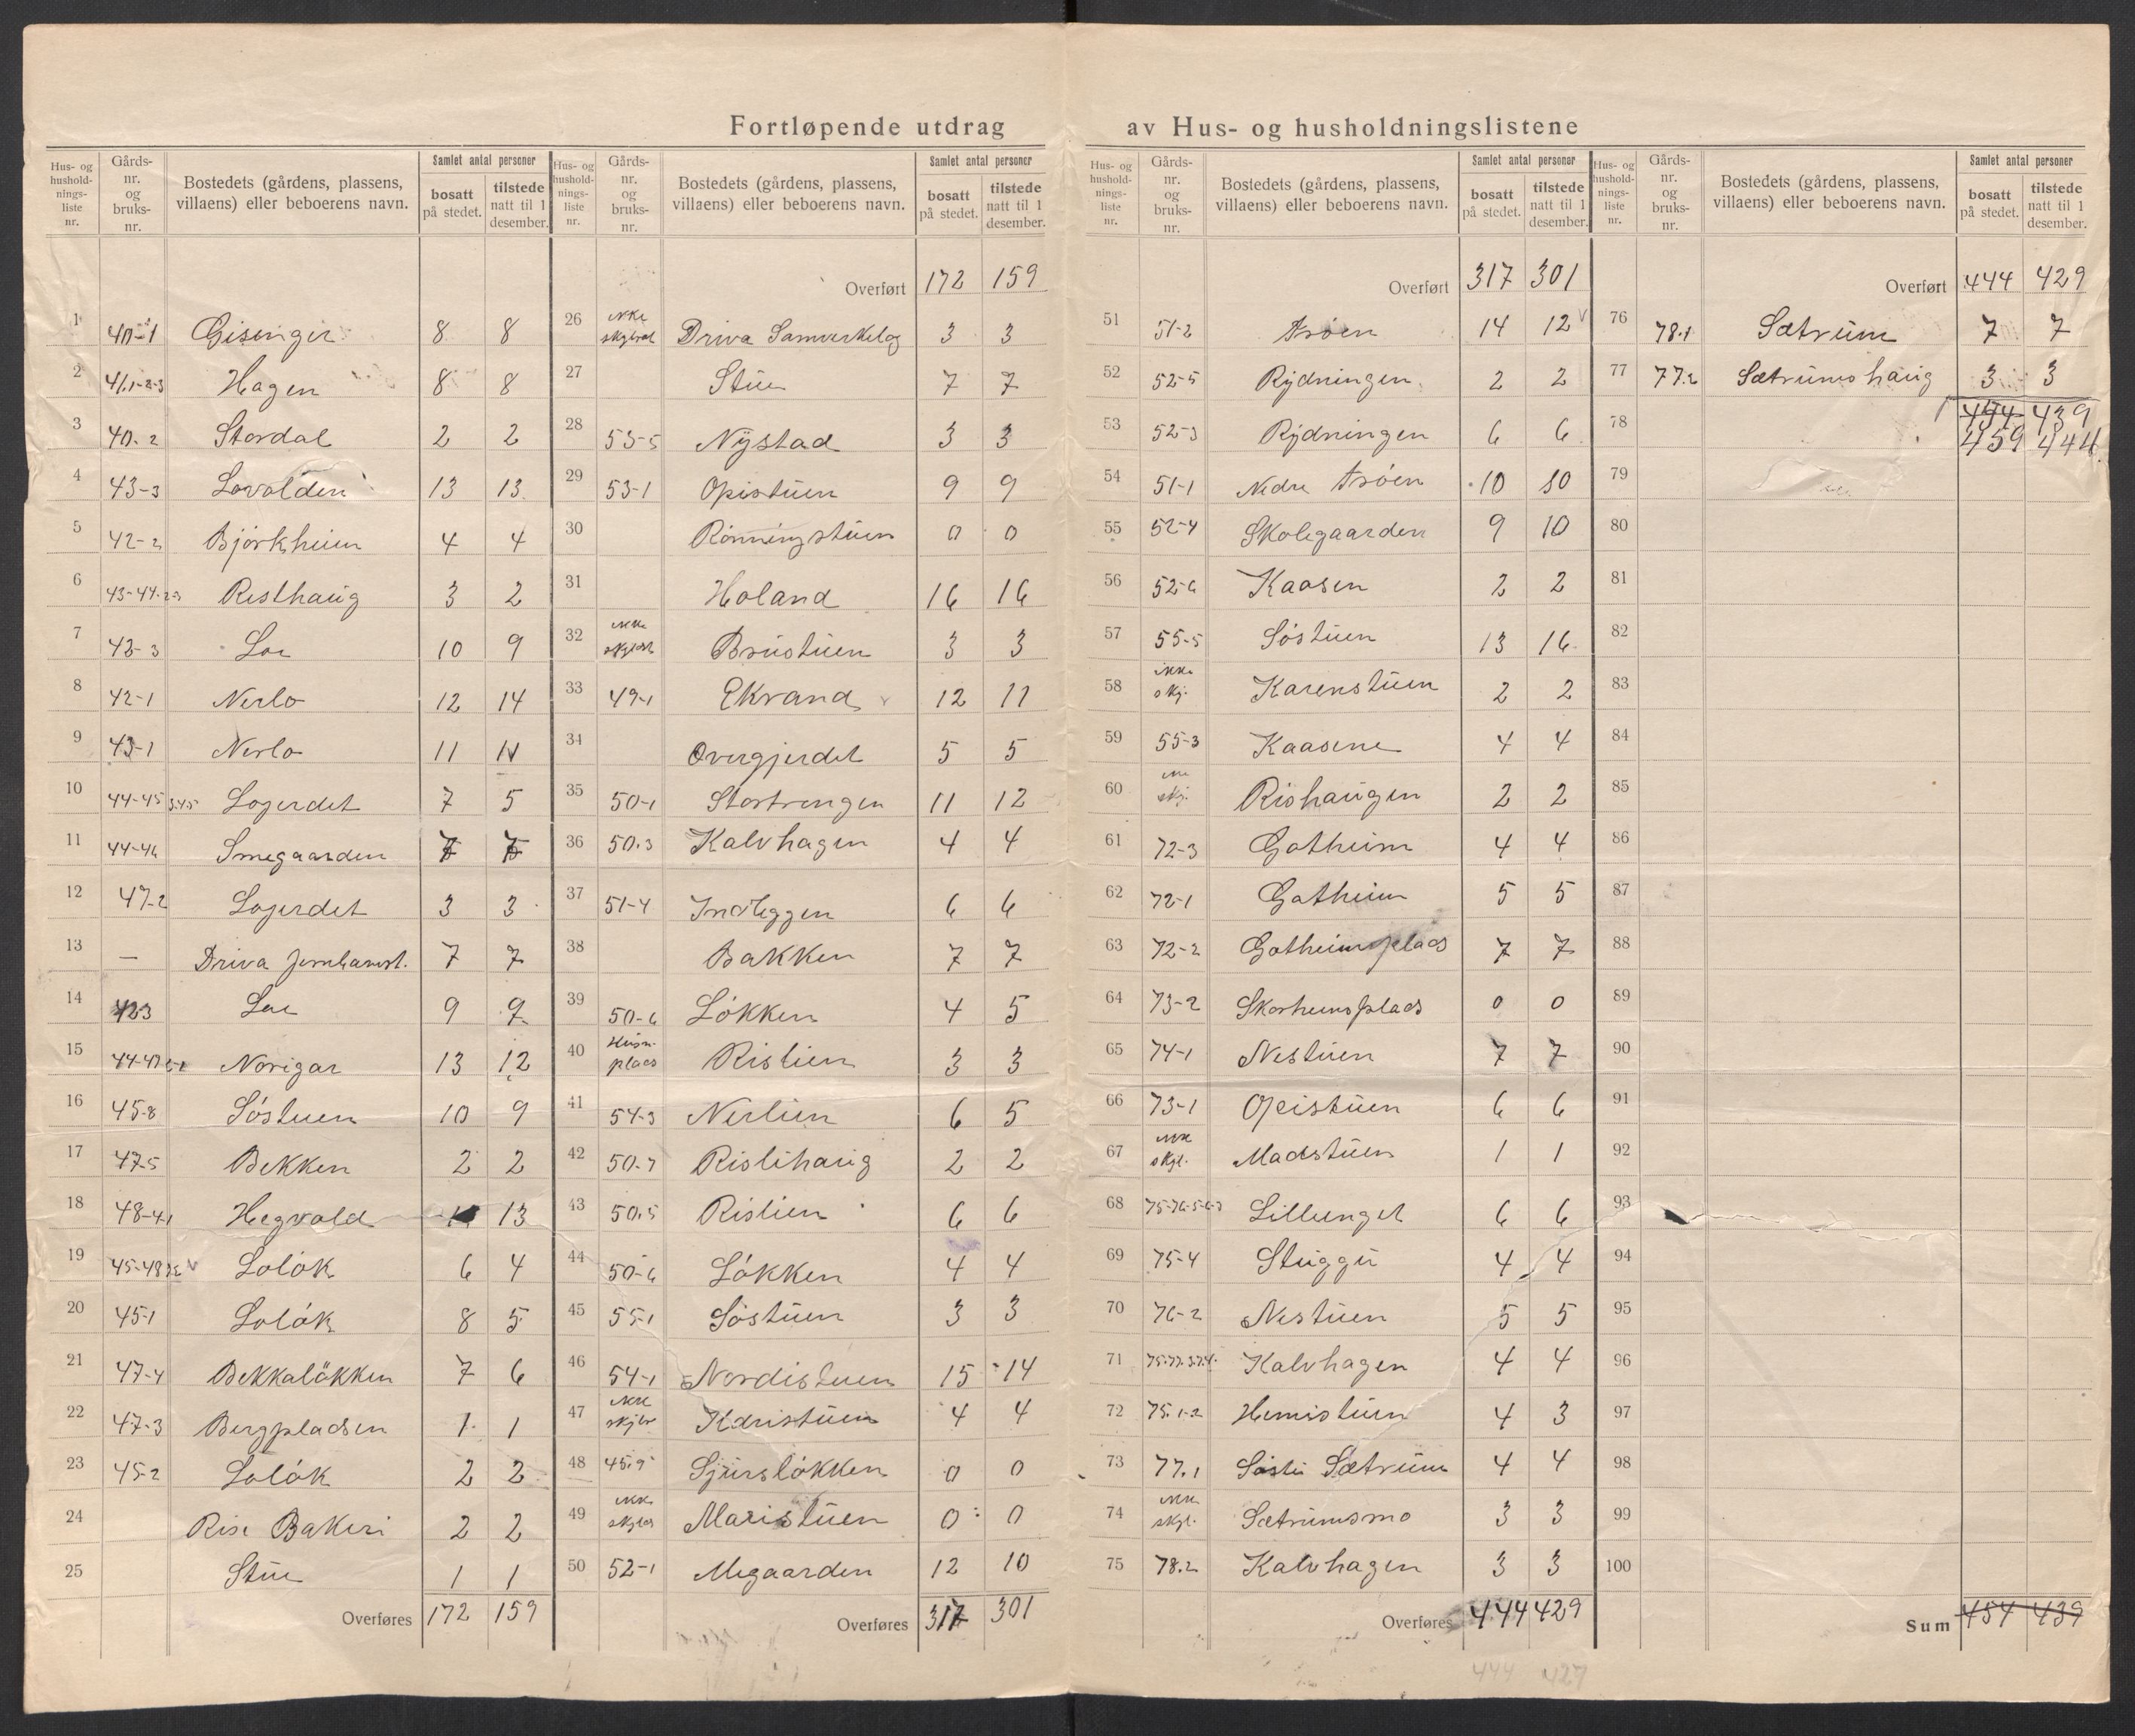 Fortløpende utdrag av Hus- og husholdningslistene
Hus- og husholdnings-liste nr. | Gårds-nr. og bruks-nr. | Bostedets (gårdens, plassens, villaens) eller beboerens navn. | Samlet antal personer bosatt på stedet. | tilstede natt til 1 desember.
1 40-1 Gisinger 8 8
2 41.1-2-3 Hagen 8 8
3 40-2 Stordal 2 2
4 43-3 Lovolden 13 13
5 42-2 Björkheim 4 4
6 43-44-2-3 Risthaug 3 2
7 42-3 Loe 10 9
8 42-1 Nerlo 12 14
9 43-1 Nerlo 11
10 44-45 Lojerdet 7 5
11 44-46 Smegaarden 7 7
12 47-2 Lojerdet 3 3
13 — Driva Jernbanest. 7 7
14 423 Loe 9 9
15 44-47 Norigar 13 12
16 45-8 Söstuen 10 9
17 47-5 Bekken 2 2
18 48-4,1 Hegvold 13
19 45-48 Lolök 6 4
20 45-1 Lolök 8 5
21 47-4 Bekkalökken 7 6
22 47-3 Bergpladsen 1 1
23 45-2 Lolök 2 2
24 Rise Bakeri 2 2
25 Stue 1 1
Overføres 172 159
Hus- og husholdnings-liste nr. | Gårds-nr. og bruks-nr. | Bostedets (gårdens, plassens, villaens) eller beboerens navn. | Samlet antal personer bosatt på stedet. | tilstede natt til 1 desember.
Overført 172 159
26 ikke Driva Samverkelag 3 3
27 Stue 7 7
28 53-5 Nÿstad 3 3
29 53-1 Opistuen 9 9
30 Rönningstuen 0 0
31 Holand 16 16
32 ikke Brustuen 3 3
33 49-1 Ekrand 12 11
34 Overgjerdet 5 5
35 50-1 Stortrengen 11 12
36 50.3 Kalvhagen 4 4
37 51-4 Indleggen 6 6
38 Bakken 7 7
39 50-6 Lökken 4 5
40 Husm-plads Rislien 3 3
41 54-3 Nerlien 6 5
42 50.7 Rislihaug 2 2
43 50.5 Rislien 6 6
44 50-6 Lökken 4 4
45 55-1 Söstuen 3 3
46 54-1 Nordistuen 15 14
47 ikke Karistuen 4 4
48 45.9 Sjurslökken 0 0
49 ikke Maristuen 0 0
50 52-1 Megaarden 12 10
Overføres 317 301
Hus- og husholdnings-liste nr. | Gårds-nr. og bruks-nr. | Bostedets (gårdens, plassens, villaens) eller beboerens navn. | Samlet antal personer bosatt på stedet. | tilstede natt til 1 desember.
Overført 317 301
51 51-2 Tröen 14 12
52 52-5 Rÿdningen 2 2
53 52-3 Rÿdningen 6 6
54 51-1 Nedre Tröen 10 10
55 52-4 Skolegaarden 9 10
56 52-6 Kaasen 2 2
57 55-5 Söstuen 13 16
58 ikke skj. Karenstuen 2 2
59 55-3 Kaasene 4 4
60 skj. Rishaugen 2 2
61 72-3 Gotheim 4 4
62 72-1 Gotheim 5 5
63 72-2 Gotheimsplads 7 7
64 73-2 Skorheimsplads 0 0
65 74-1 Nestuen 7 7
66 73-1 Opistuen 6 6
67 ikke skyl. Madstuen 1 1
68 75-76-5-6-3 Lillenget 6 6
69 75-4 Stuggu 4 4
70 76-2 Nestuen 5 5
71 Kalvhagen 4 4
72 75.1-2 Hemistuen 4 3
73 77.1 Söstu Sætrum 4 4
74 ikke skyl. Sætrumsmo 3 3
75 78.2 Kalvhagen 3 3
Overføres 444 429
444 427
Hus- og husholdnings-liste nr. | Gårds-nr. og bruks-nr. | Bostedets (gårdens, plassens, villaens) eller beboerens navn. | Samlet antal personer bosatt på stedet. | tilstede natt til 1 desember.
Overført 444 429
76 78.1 Sætrum 7 7
77 77.2 Sætrumshaug 3 3
78 454 439
459 444
79
80
81
82
83
84
85
86
87
88
89
90
91
92
93
94
95
96
97
98
99
100
Sum 454 439